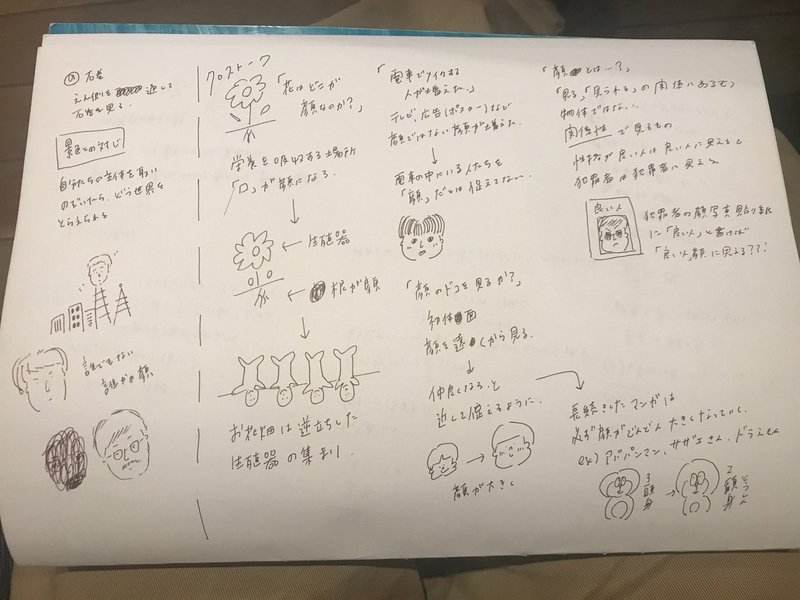 石巻
返して
石巻を見る.
景色との対じ
自分たちの主体を取り
のぞいたら、どう世界を
とらえられる
誰でもない
誰かの顔
クロストーク
「花はどこが
顔なのか?」
栄養を吸収する場所
「口」が顔になる.
生殖器
根が顔
お花畑は逆立ちした
生殖器の集まり.
「電車でメイクする
人が増えた.」
テレビ、広告(ポスター)など
顔ではない顔が増えた.
電車の中にいる人たちを
「顔」だとは捉えてない.
「顔のドコを見るか?」
初体面
顔を遠くから見る.
仲良くなると
近して捉えるように.
顔が大きく
「顔とは…?」
「見る」「見られる」の関係にあるモ
物体ではない…
関係性で見るもの
性格が良い人は良い人に見えるし
犯罪者は犯罪者に見える
良い人
犯罪者の顔写真貼り紙
に「良い人」と書けば
「良い人顔に見える???
長続きしたマンガは
必ず顔がどんどん大きくなっていく.
ex) アンパンマン、サザエさん、ドラえもん
3頭身
2頭身